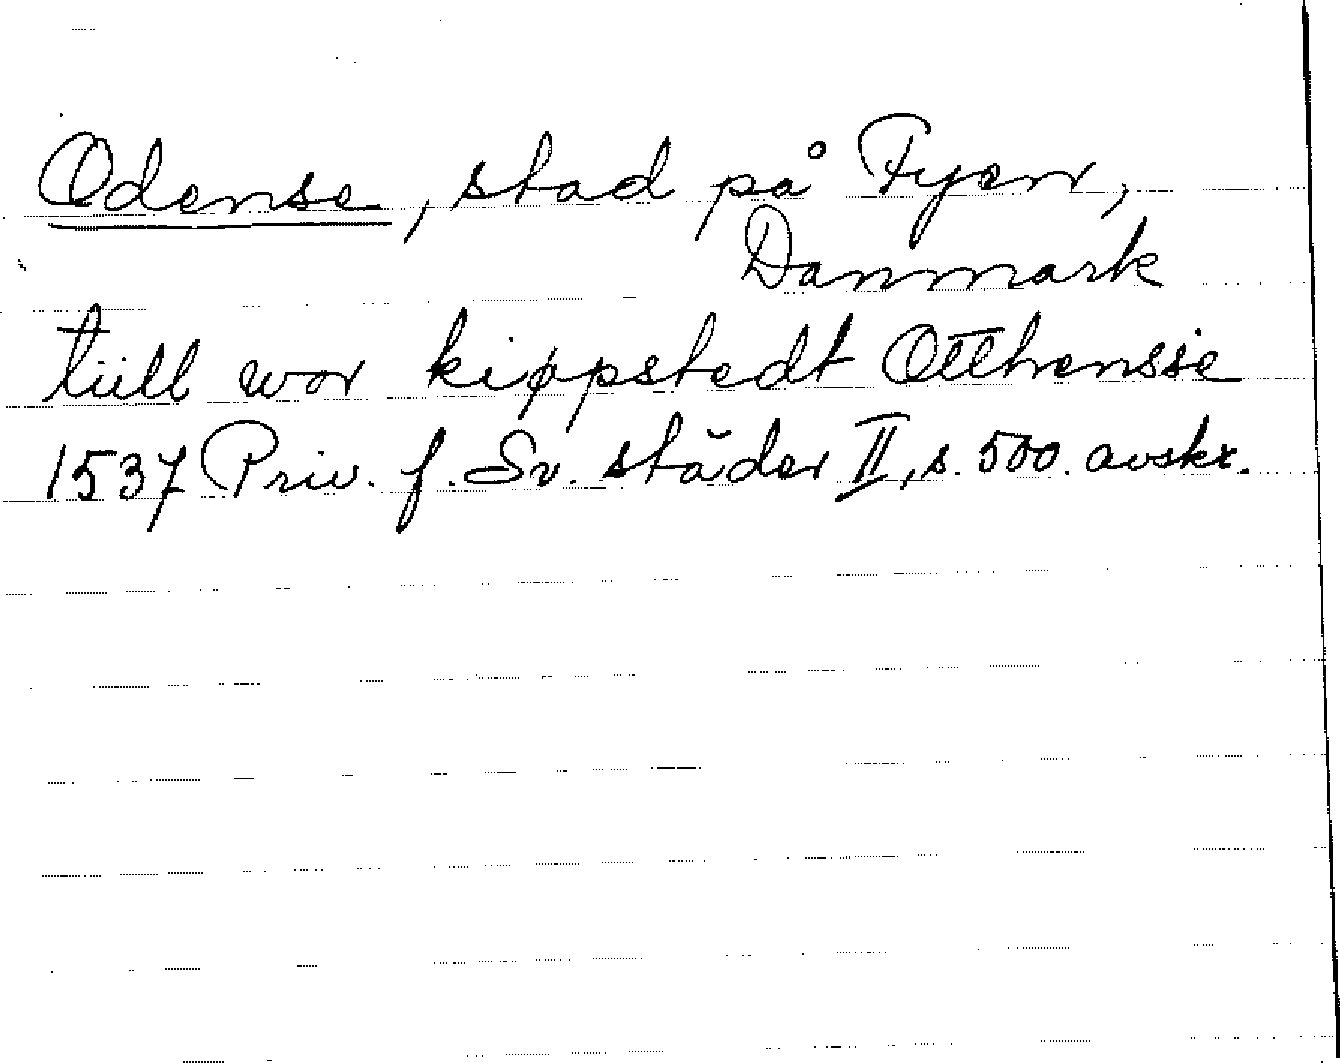 Odense, stad på Fyen,
Danmark
tiill wor kippstedt Otthensse
1537 Priv. f. Sv. städer II, s. 500. avskr.